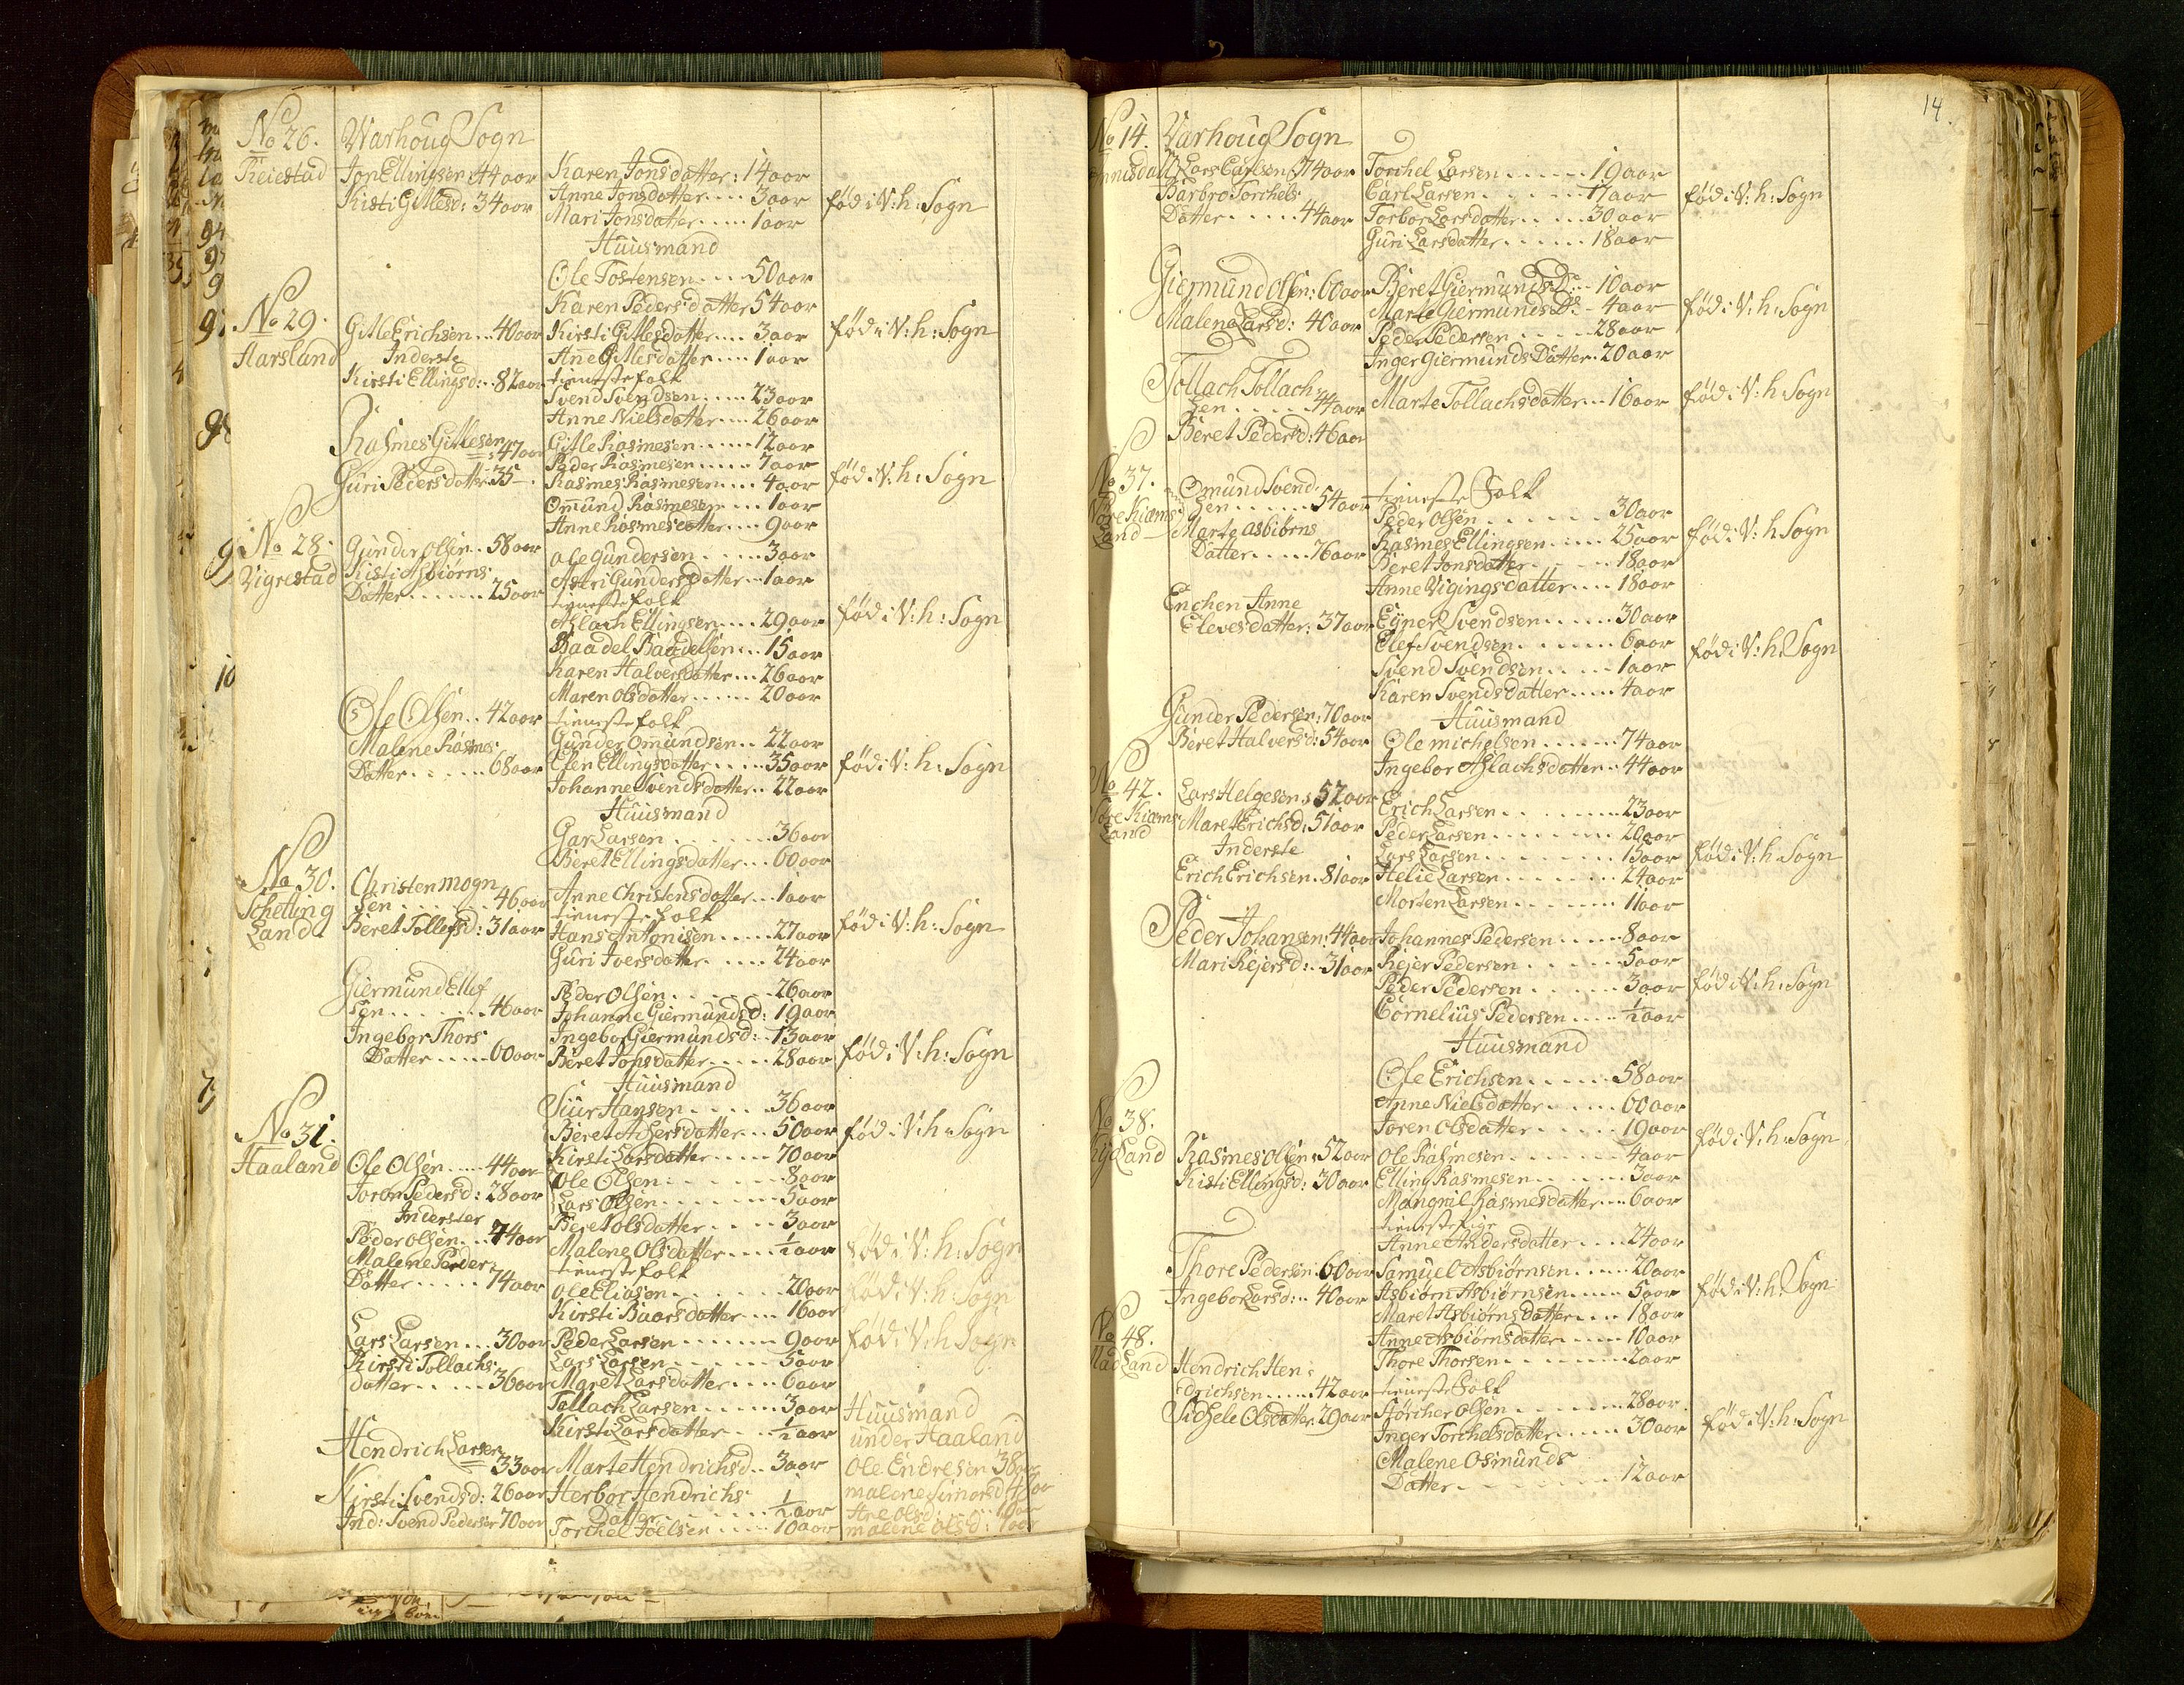 No 26. Warhoug Sogn
Reiestad Jon Ellingsen 44 aar Karen Jonsdatter: 14 aar
Kisti Gitlesd: 34 aar Anne Jonsdatter.... 3 aar fød i V: h: Sogn
Mari Jonsdatter.... 1 aar
Huusmand
Ole Tostensen.... 50 aar
Karen Pedersdatter 54 aar
No 29. Gitle Erichsen... 40 aar Kirsti Gitlesdatter.... 3 aar fød i V: h: Sogn
Aarsland Inderste Ane Gitlesdatter.... 1 aar
Kirsti Ellingsd:.. 82 aar tieneste folk
Svend Svendsen.... 23 aar
Anne Nielsdatter.... 26 aar
Rasmes Gitlesen 47 aar Gitle Rasmesen.... 12 aar
Peder Rasmesen.... 7 aar
Guri Pedersdatter 35 Rasmes Rasmesen.... 4 aar fød i V: h: Sogn
Omund Rasmesen... 1 aar
Anne Rasmesdatter.... 9 aar
No 28. Gunder Olsen.. 58 aar Ole Gundersen.... 3 aar
Vigrestad Kisti Asbiørns Astri Gundersdatter... 1 aar
Datter...... 25 aar tieneste folk
Aslach Ellingsen.... 29 aar fød i V: h: Sogn
Baadel Baadelsen... 15 aar
Karen Halversdatter... 26 aar
Maren Olsdatter..... 20 aar
Ole Olsen.. 42 aar tieneste folk
Malene Rasmes Gunder Omundsen.. 22 aar
Datter..... 68 aar Elen Ellingsdatter.... 35 aar fød i V: h: Sogn
Johanne Svendsdatter.. 22 aar
Huusmand
Gar Larsen....... 36 aar
Beret Ellingsdatter... 60 aar
No 30. Christen mogn
Schelling sen...... 46 aar Anne Christensdatter... 1 aar
Land. tieneste folk
Beret Tollefsd: 31 aar Hans Antonisen..... 27 aar fød i V: h: Sogn
Guri Iversdatter..... 24 aar
Giermund Ellef Peder Olsen...... 26 aar
sen...... 46 aar Johanne Giermundsd: 19 aar
Ingebor Thors Ingebor Giermundsd:.. 13 aar
Datter..... 60 aar Beret Jonsdatter.... 28 aar fød i V: h: Sogn
Huusmand
Siur Hansen..... 36 aar
No 31. Beret Achersdatter... 50 aar fød i V: h: Sogn
Haaland Ole Olsen..... 44 aar Kirsti Larsdatter..... 70 aar
Joron Pedersd: 28 aar Ole Olsen....... 8 aar
Inderster Lars Olsen....... 5 aar
Peder Olsen... 74 aar Beret Olsdatter.... 3 aar
Malene Peder Malene Olsdatter.... 1/2 aar fød i V: h: Sogn
tieneste folk
Datter..... 74 aar Ole Eliasen....... 20 aar fød i V: h: Sogn
Kirsti Baarsdatter.... 16 aar
Lars Larsen... 30 aar Peder Larsen...... 9 aar fød i V: h: Sogn
Kirsti Tollachs Lars Larsen...... 5 aar
datter..... 36 aar Maret Larsdatter.... 6 aar
Tollach Larsen..... 3 aar Huusmand
Kirsti Larsdatter.... 1/2 aar under Haaland
Hendrich Larsen 33 aar Marte Hendrichsd.. 3 aar Ole Endresen 38 aar
Kirsti Svendsd: 26 aar Herbor Hendrichs malene Simonsd 48 aar
Datter 1/2 aar Ane Olsd:
Ind: Svend Pedersen 70 aar Torchel Joelsen..... 10 aar malene olsd: 1 aar
14.
No 14. Varhoug Sogn
Lars Carlsen 74 aar Torchel Larsen..... 19 aar
Barbro Torchels Carl Larsen...... 17 aar fød i V: h: Sogn
Datter..... 44 aar Torbor Larsdatter.... 30 aar
Guri Larsdatter..... 18 aar
Giermund Olsen: 60 aar Beret Giermunds D:.. 10 aar
Malena Larsd: 40 aar Marte Giermunds D:.. 4 aar fød i V: h: Sogn
Peder Pedersen..... 28 aar
Inger Giermunds Datter. 20 aar
Tollach Tollach
sen..... 44 aar Marte Tollachsdatter.. 16 aar fød i V: h: Sogn
Beret Pedersd: 46 aar
No 37. Omund Svend tieneste Folk
sen...... 54 aar Peder Olsen...... 30 aar
Land Marte Asbiørns Rasmes Ellingsen..... 25 aar fød i V: h Sogn
Datter..... 76 aar Beret Jonsdatter..... 18 aar
Anne Vigingsdatter.... 18 aar
Enchen Anne
Elevesdatter: 37 aar Ejner Svendsen...... 30 aar
Elef Svendsen....... 6 aar fød i V: h: Sogn
Svend Svendsen..... 1 aar
Karen Svendsdatter.... 4 aar
Gunder Pedersen: 70 aar Huusmand
Beret Halversd: 54 aar Ole michelsen...... 74 aar
Ingebor Aslachsdatter.. 44 aar
No 42. Lars Helgesen: 52 aar Erich Larsen....... 23 aar
Land Maret Erichsd: 51 aar Peder Larsen........ 20 aar
Inderste Lars Larsen....... 15 aar fød i V: h: Sogn
Erich Erichsen. 81 aar Helie Larsen....... 24 aar
Morten Larsen...... 11 aar
Peder Johansen: 44 aar Johannes Pedersen..... 8 aar
Mari Rejersd: 31 aar Rejer Pedersen...... 5 aar
Peder Pedersen..... 3 aar fød i V: h: Sogn
Cornelius Pedersen.... 1/2 aar
Huusmand
Ole Erichsen..... 58 aar
No 38. Anne Nielsdatter.... 60 aar
Joren Olsdatter..... 19 aar fød i V: h: Sogn
Rasmes Olsen: 52 aar Ole Rasmesen...... 4 aar
Kisti Ellingsd: 30 aar Elling Rasmesen...... 3 aar
Mangnil Rasmesdatter... 6 aar
tieneste pige
Anne Andersdatter.... 24 aar
Thore Pedersen. 60 aar Samuel Asbiørnsen..... 20 aar
Ingebor Larsd:... 40 aar Asbiørn Asbiørnsen.... 5 aar fød i V: h: Sogn
Maret Asbiørnsdatter... 18 aar
No 48. Anne Asbiørnsdatter.... 10 aar
Hendrich Hen Thore Thorsen....... 2 aar
drichsen..... 42 aar tieneste Folk
Sidsele Olsdatter. 29 aar Størcher Olsen....... 28 aar fød i V: h: Sogn
Inger Torchelsdatter.... 30 aar
Malene Osmunds
Datter........ 12 aar